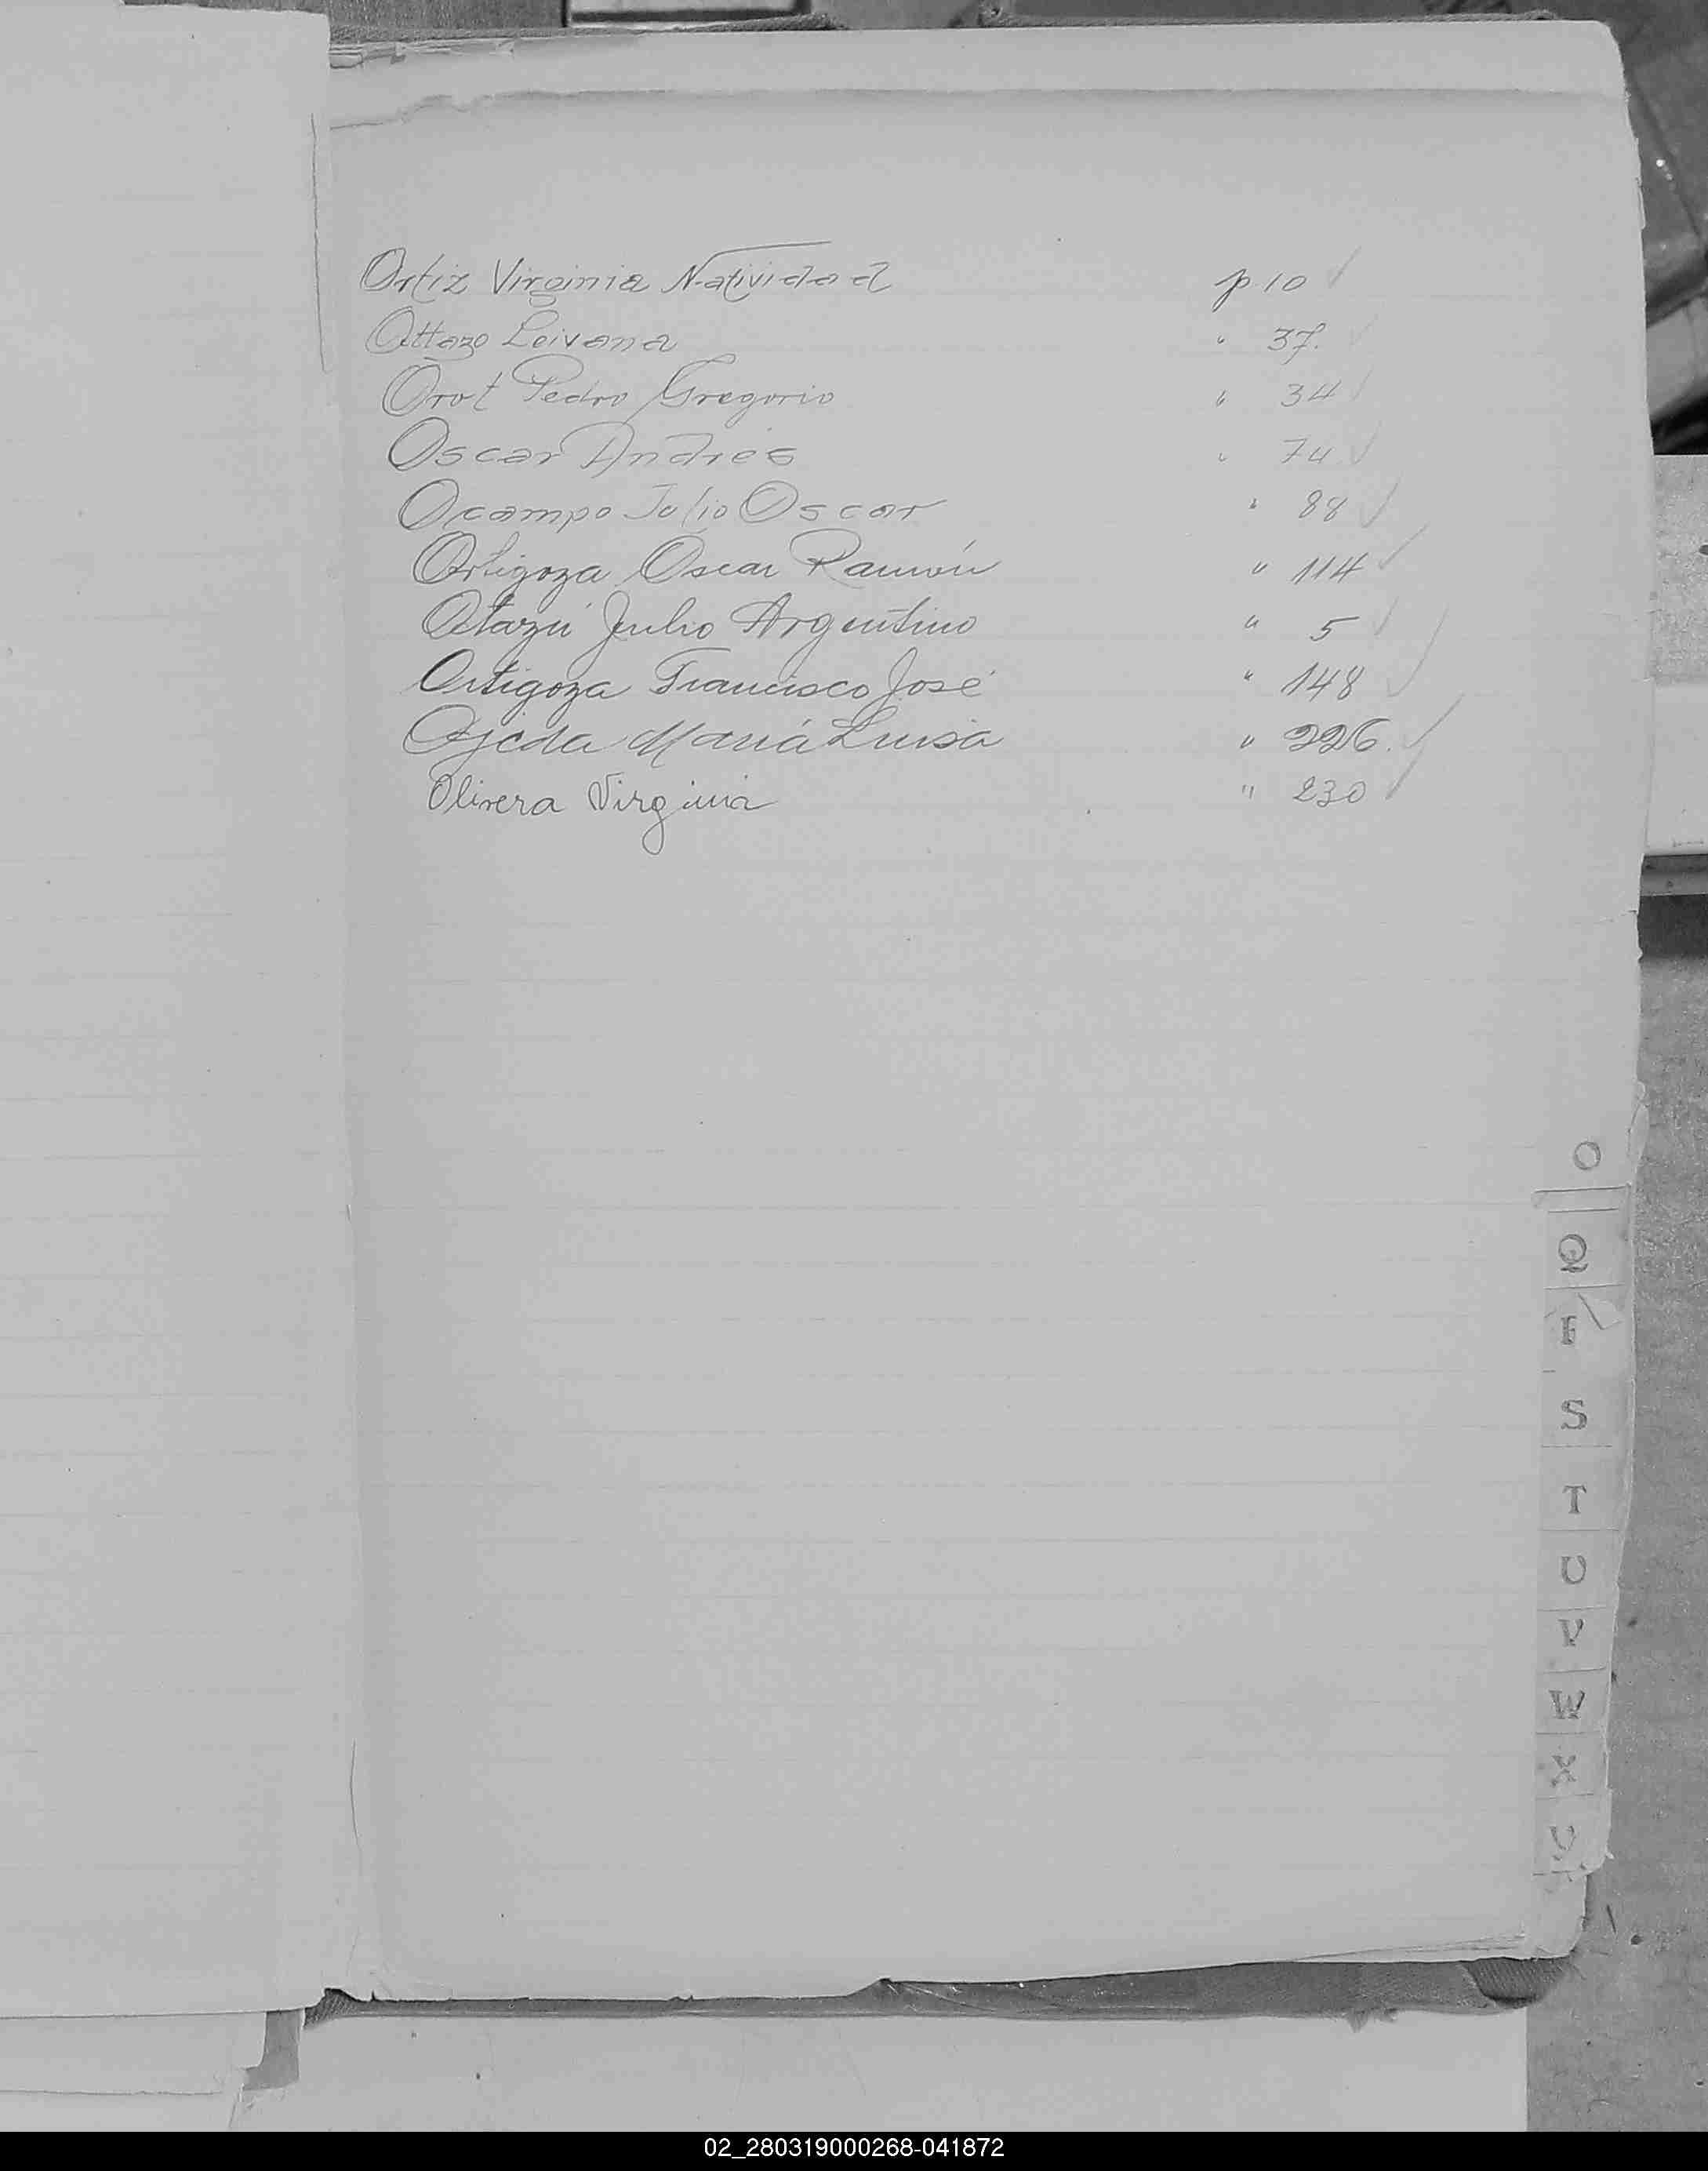 Ortiz Virginia Natividad p 10 ✓
Ottazo Leivana " 37. ✓
Orot Pedro Gregorio " 34 ✓
Oscar Andrés " 74 ✓
Ocampo Julio Oscar " 88 ✓
Ortigoza Oscar Ramón " 114 ✓
Otazú Julio Argentino " 5 ✓
Ortigoza Francisco José " 148 ✓
Ojeda María Luisa " 226. ✓
Olivera Virginia " 230 ✓
O
Q
S
T
U
V
W
X
02_280319000268-041872